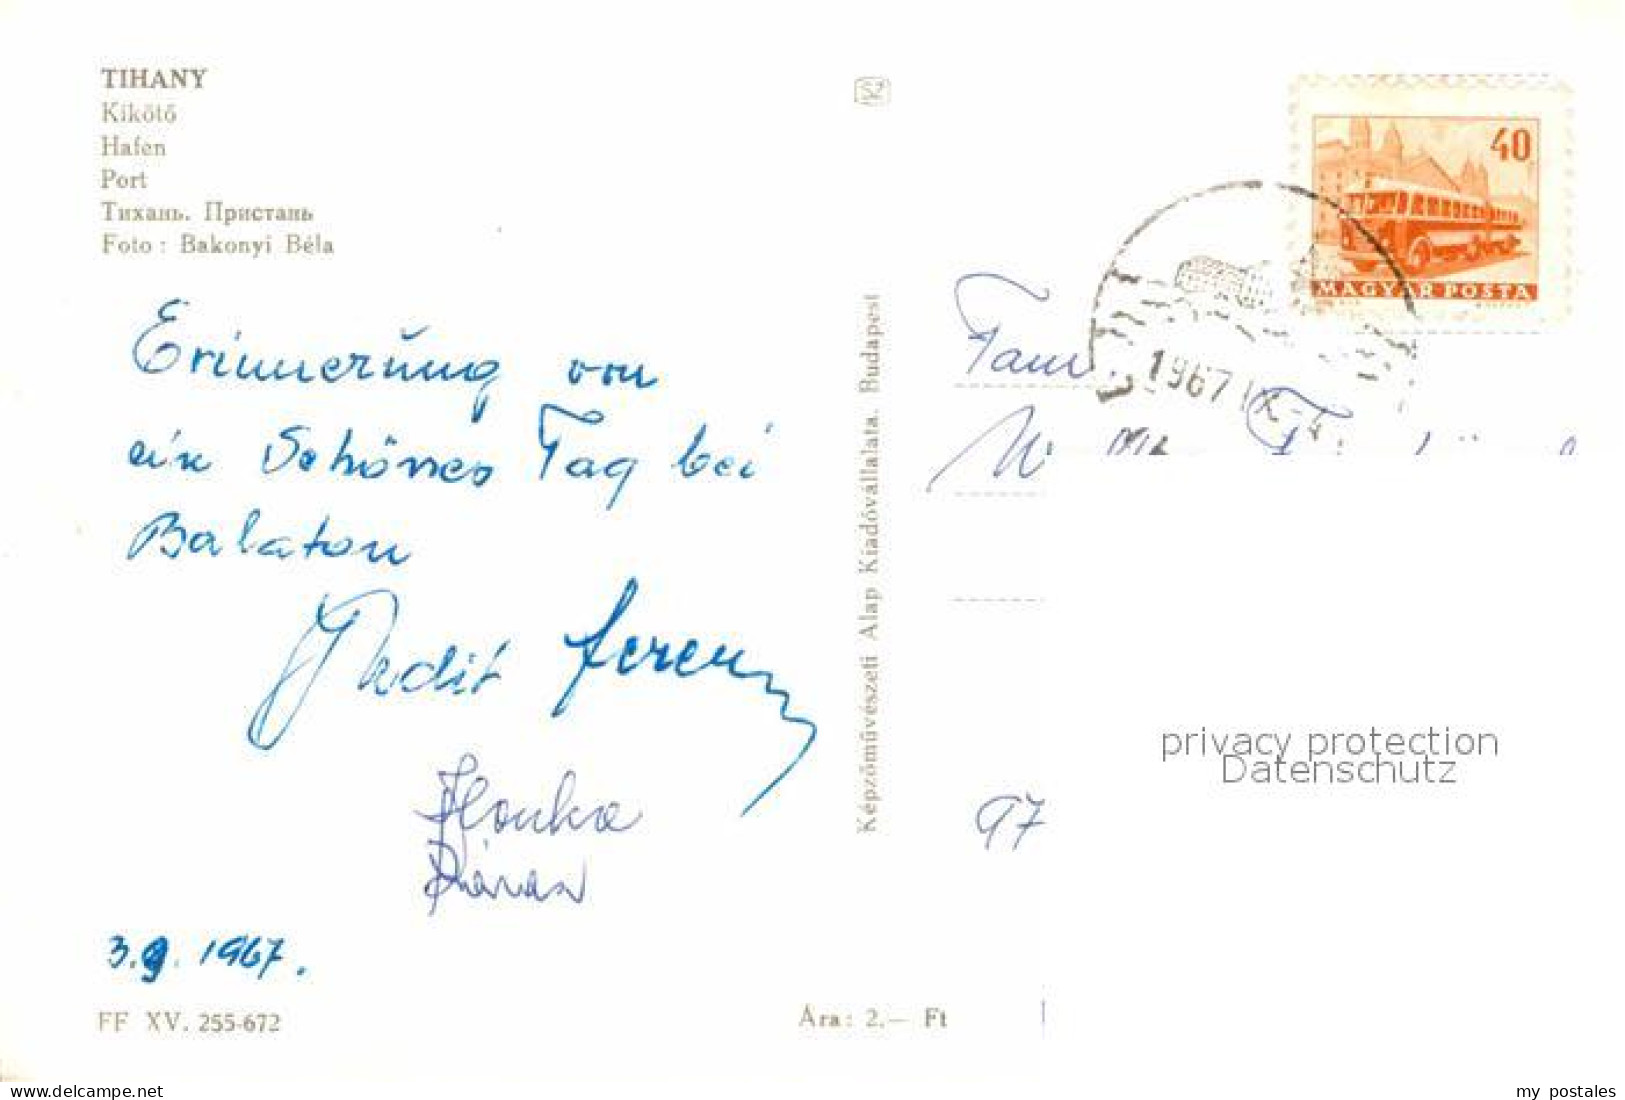 TIHANY
Kikötő
Hafen
Port
Тихань. Пристань
Foto : Bakonyi Béla
SZ
40
MAGYAR POSTA
1967 IX
Erinnerung von
ein Schönes Tag bei
Balaton
Ferenc
Ilonka
3.9. 1967.
FF XV. 255-672
Ára: 2.— Ft
Képzőművészeti Alap Kiadóvállalata. Budapest
Fam
97
privacy protection
Datenschutz
www.delcampe.net
my_postales